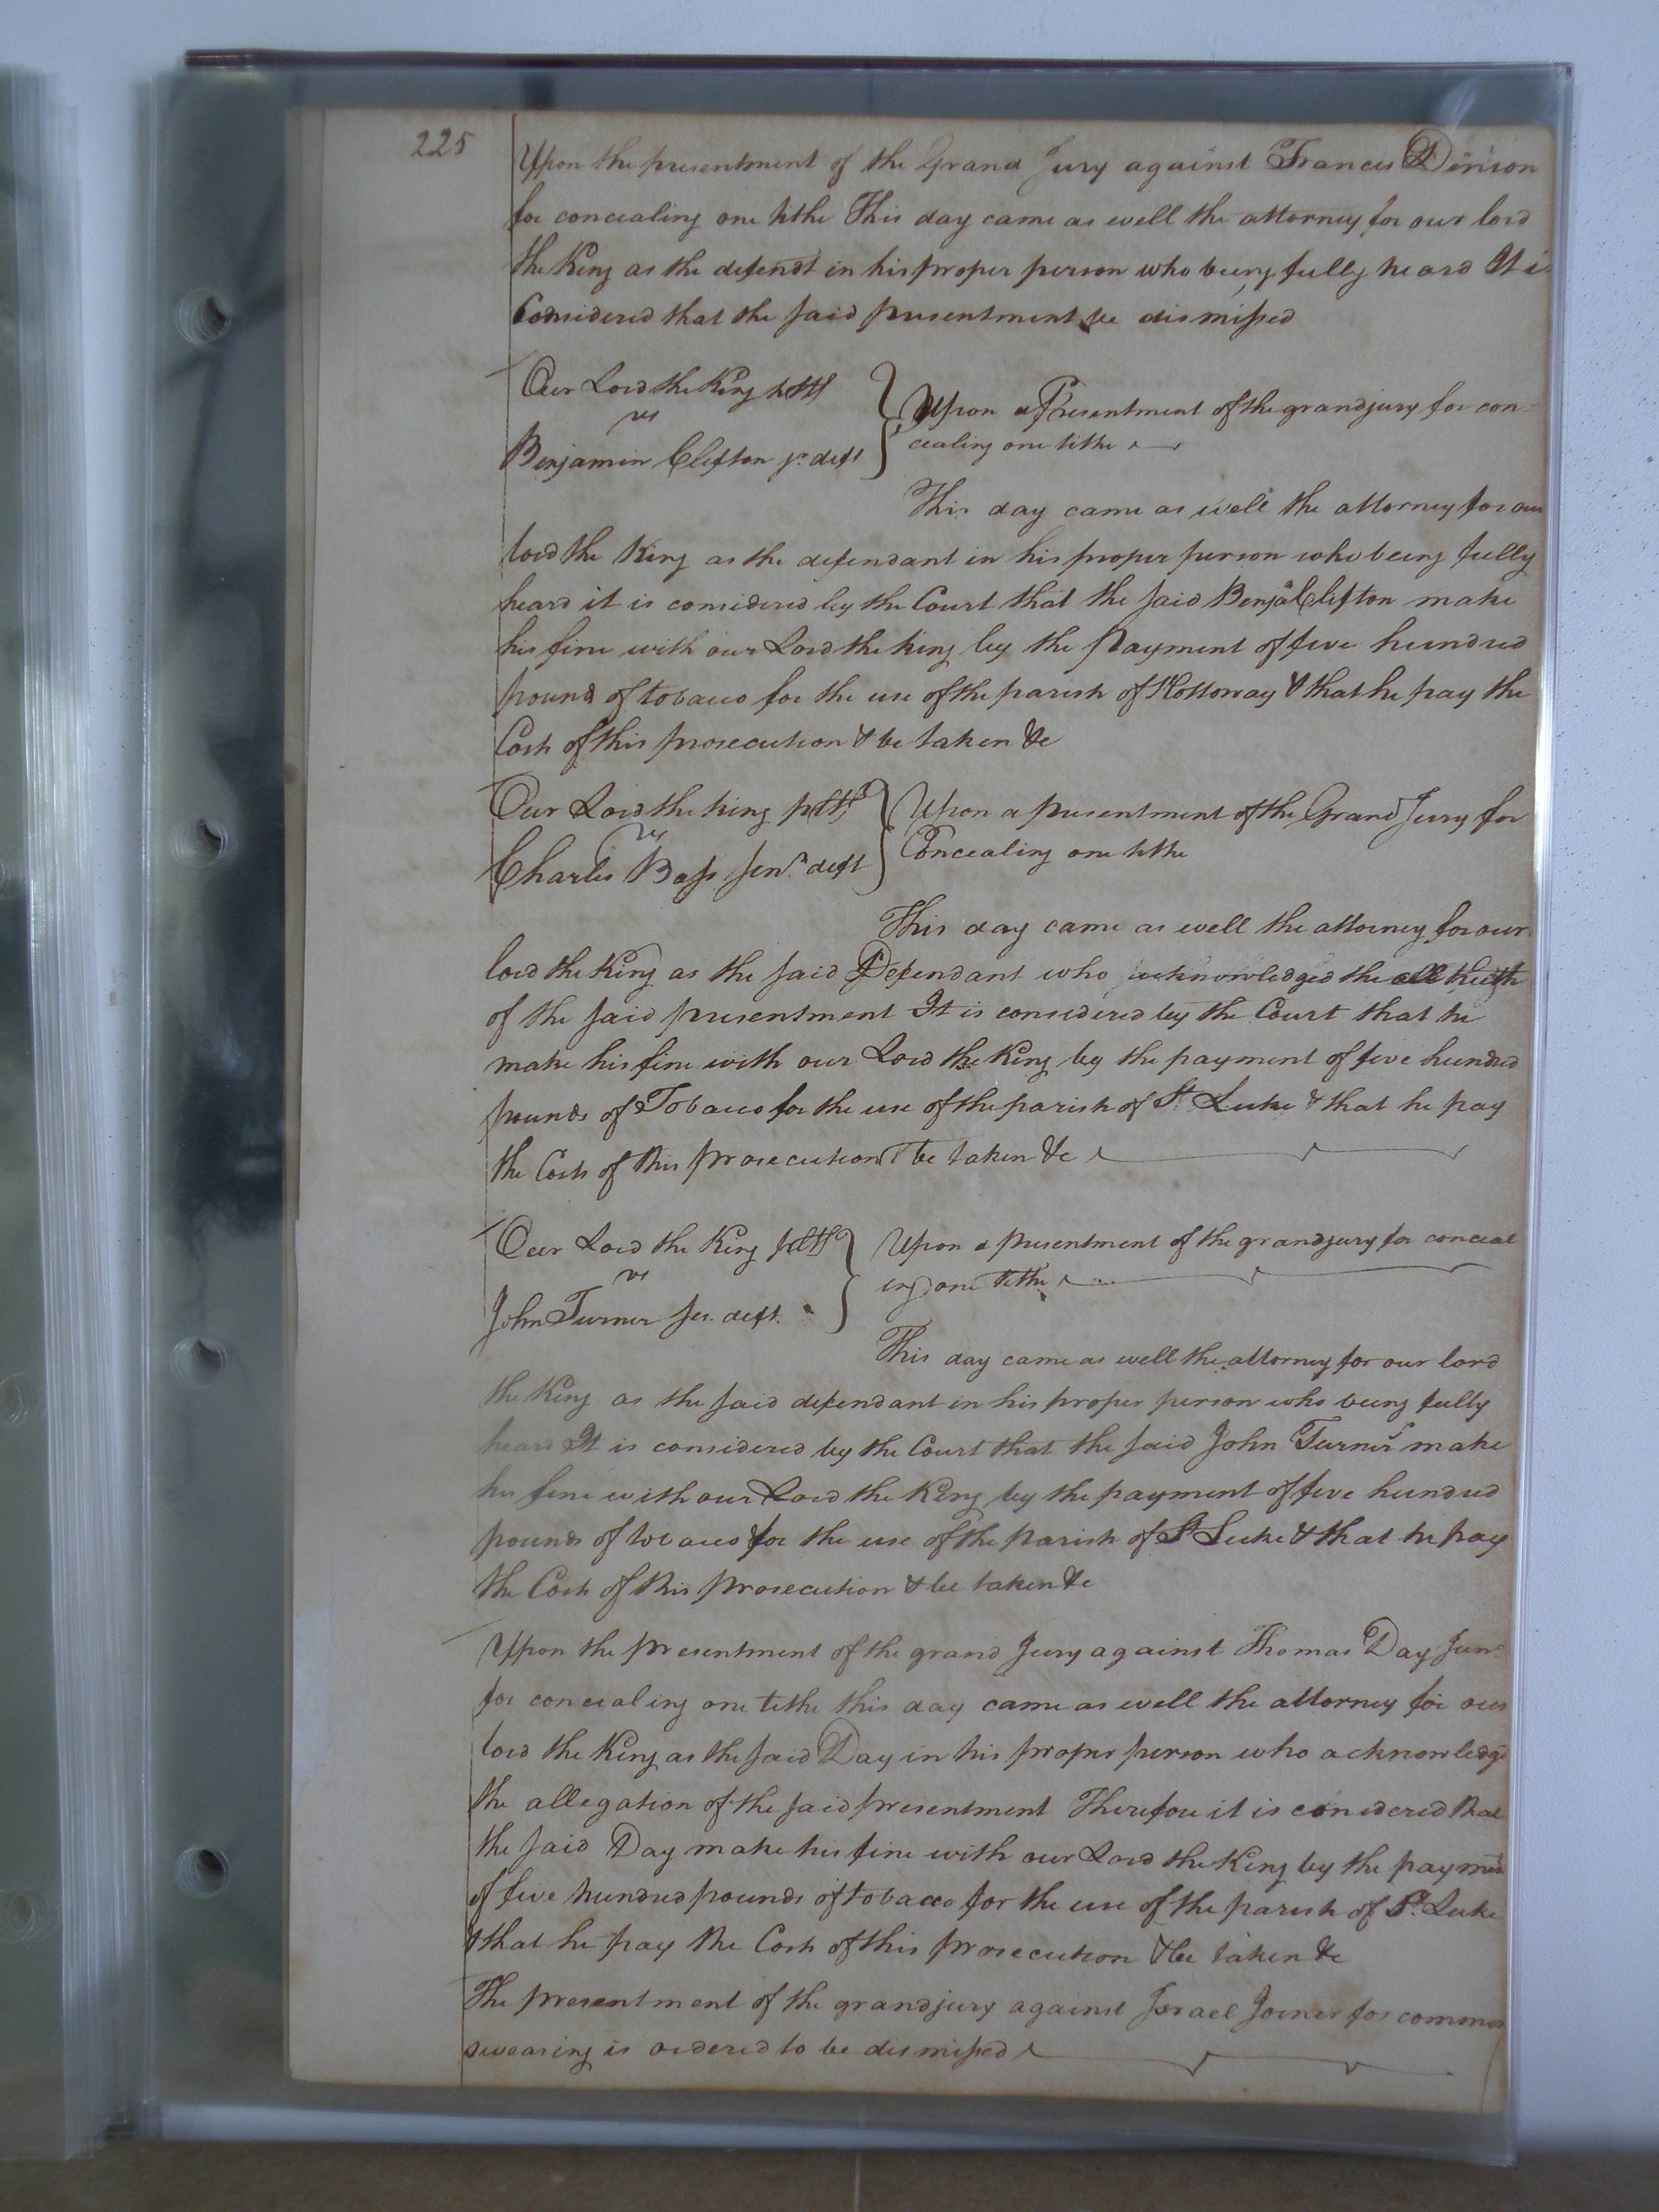 225
Upon the presentment of the Grand Jury against Francis Dinson
for concealing one tithe This day came as well the attorney for our lord
the King as the defendt in his proper person who being fully heard It is
Considered that the said presentment be dismissed
Our Lord the King pltff
vs
Benjamin Clifton jr. deft
Upon a Presentment of the grand jury for con=
cealing one tithe
This day came as well the attorney for our
lord the King as the defendant in his proper person who being fully
heard it is considered by the Court that the said Benja Clifton make
his fine with our Lord the King by the Payment of five hundred
pound of tobacco for the use of the parish of Nottoway & that he pay the
Costs of this prosecution & be taken &c
Our Lord the King pltff
vs
Charles Bass senr. deft
Upon a presentment of the Grand Jury for
Concealing one tithe
This day came as well the attorney for our
lord the King as the said Defendant who acknowledged the truth
of the said presentment It is considered by the Court that he
make his fine with our Lord the King by the payment of five hundred
pounds of Tobacco for the use of the parish of St. Luke & that he pay
the Costs of this prosecution & be taken &c
Our Lord the King pltff
vs
John Turner ser. deft.
Upon a presentment of the grand jury for conceal
ing one tithe
This day came as well the attorney for our lord
the King as the said defendant in his proper person who being fully
heard It is considered by the Court that the said John Turner make
his fine with our Lord the King by the payment of five hundred
pounds of tobacco for the use of the parish of St Luke & that he pay
the Costs of this prosecution & be taken &c
Upon the presentment of the grand Jury against Thomas Day Junr.
for concealing one tithe this day came as well the attorney for our
lord the King as the said Day in his proper person who acknowledge
the allegation of the said presentment Therefore it is considered that
the said Day make his fine with our Lord the King by the payment
of five hundred pounds of tobacco for the use of the parish of St. Luke
& that he pay the Costs of this prosecution & be taken &c
The presentment of the grand jury against Israel Joiner for common
swearing is ordered to be dismissed